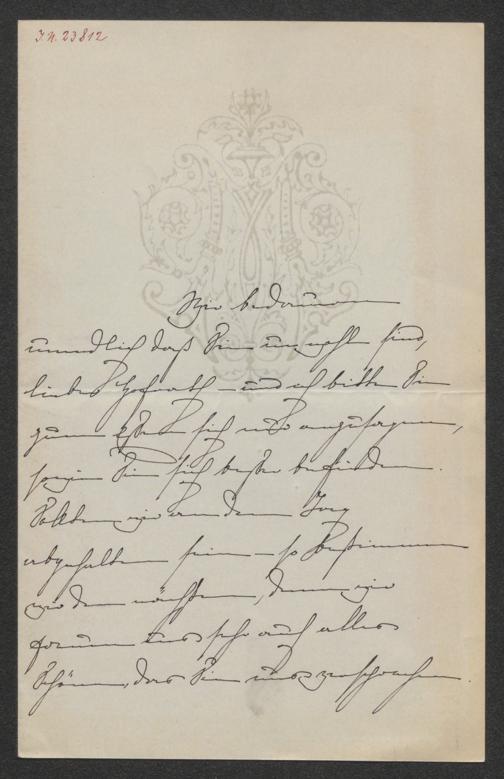 I.N. 23812
Wir bedauern
unendlich daß Sie unwohl sind,
lieber Hofrath – und ich bitte Sie
zum Essen sich nur anzusagen,
sowie Sie sich besser befinden.
Sollten wir an dem Tag
abgehalten sein – so bestimmen
wir den nächsten, denn wir
freuen uns sehr auf alles
Schöne, das Sie uns versprachen.